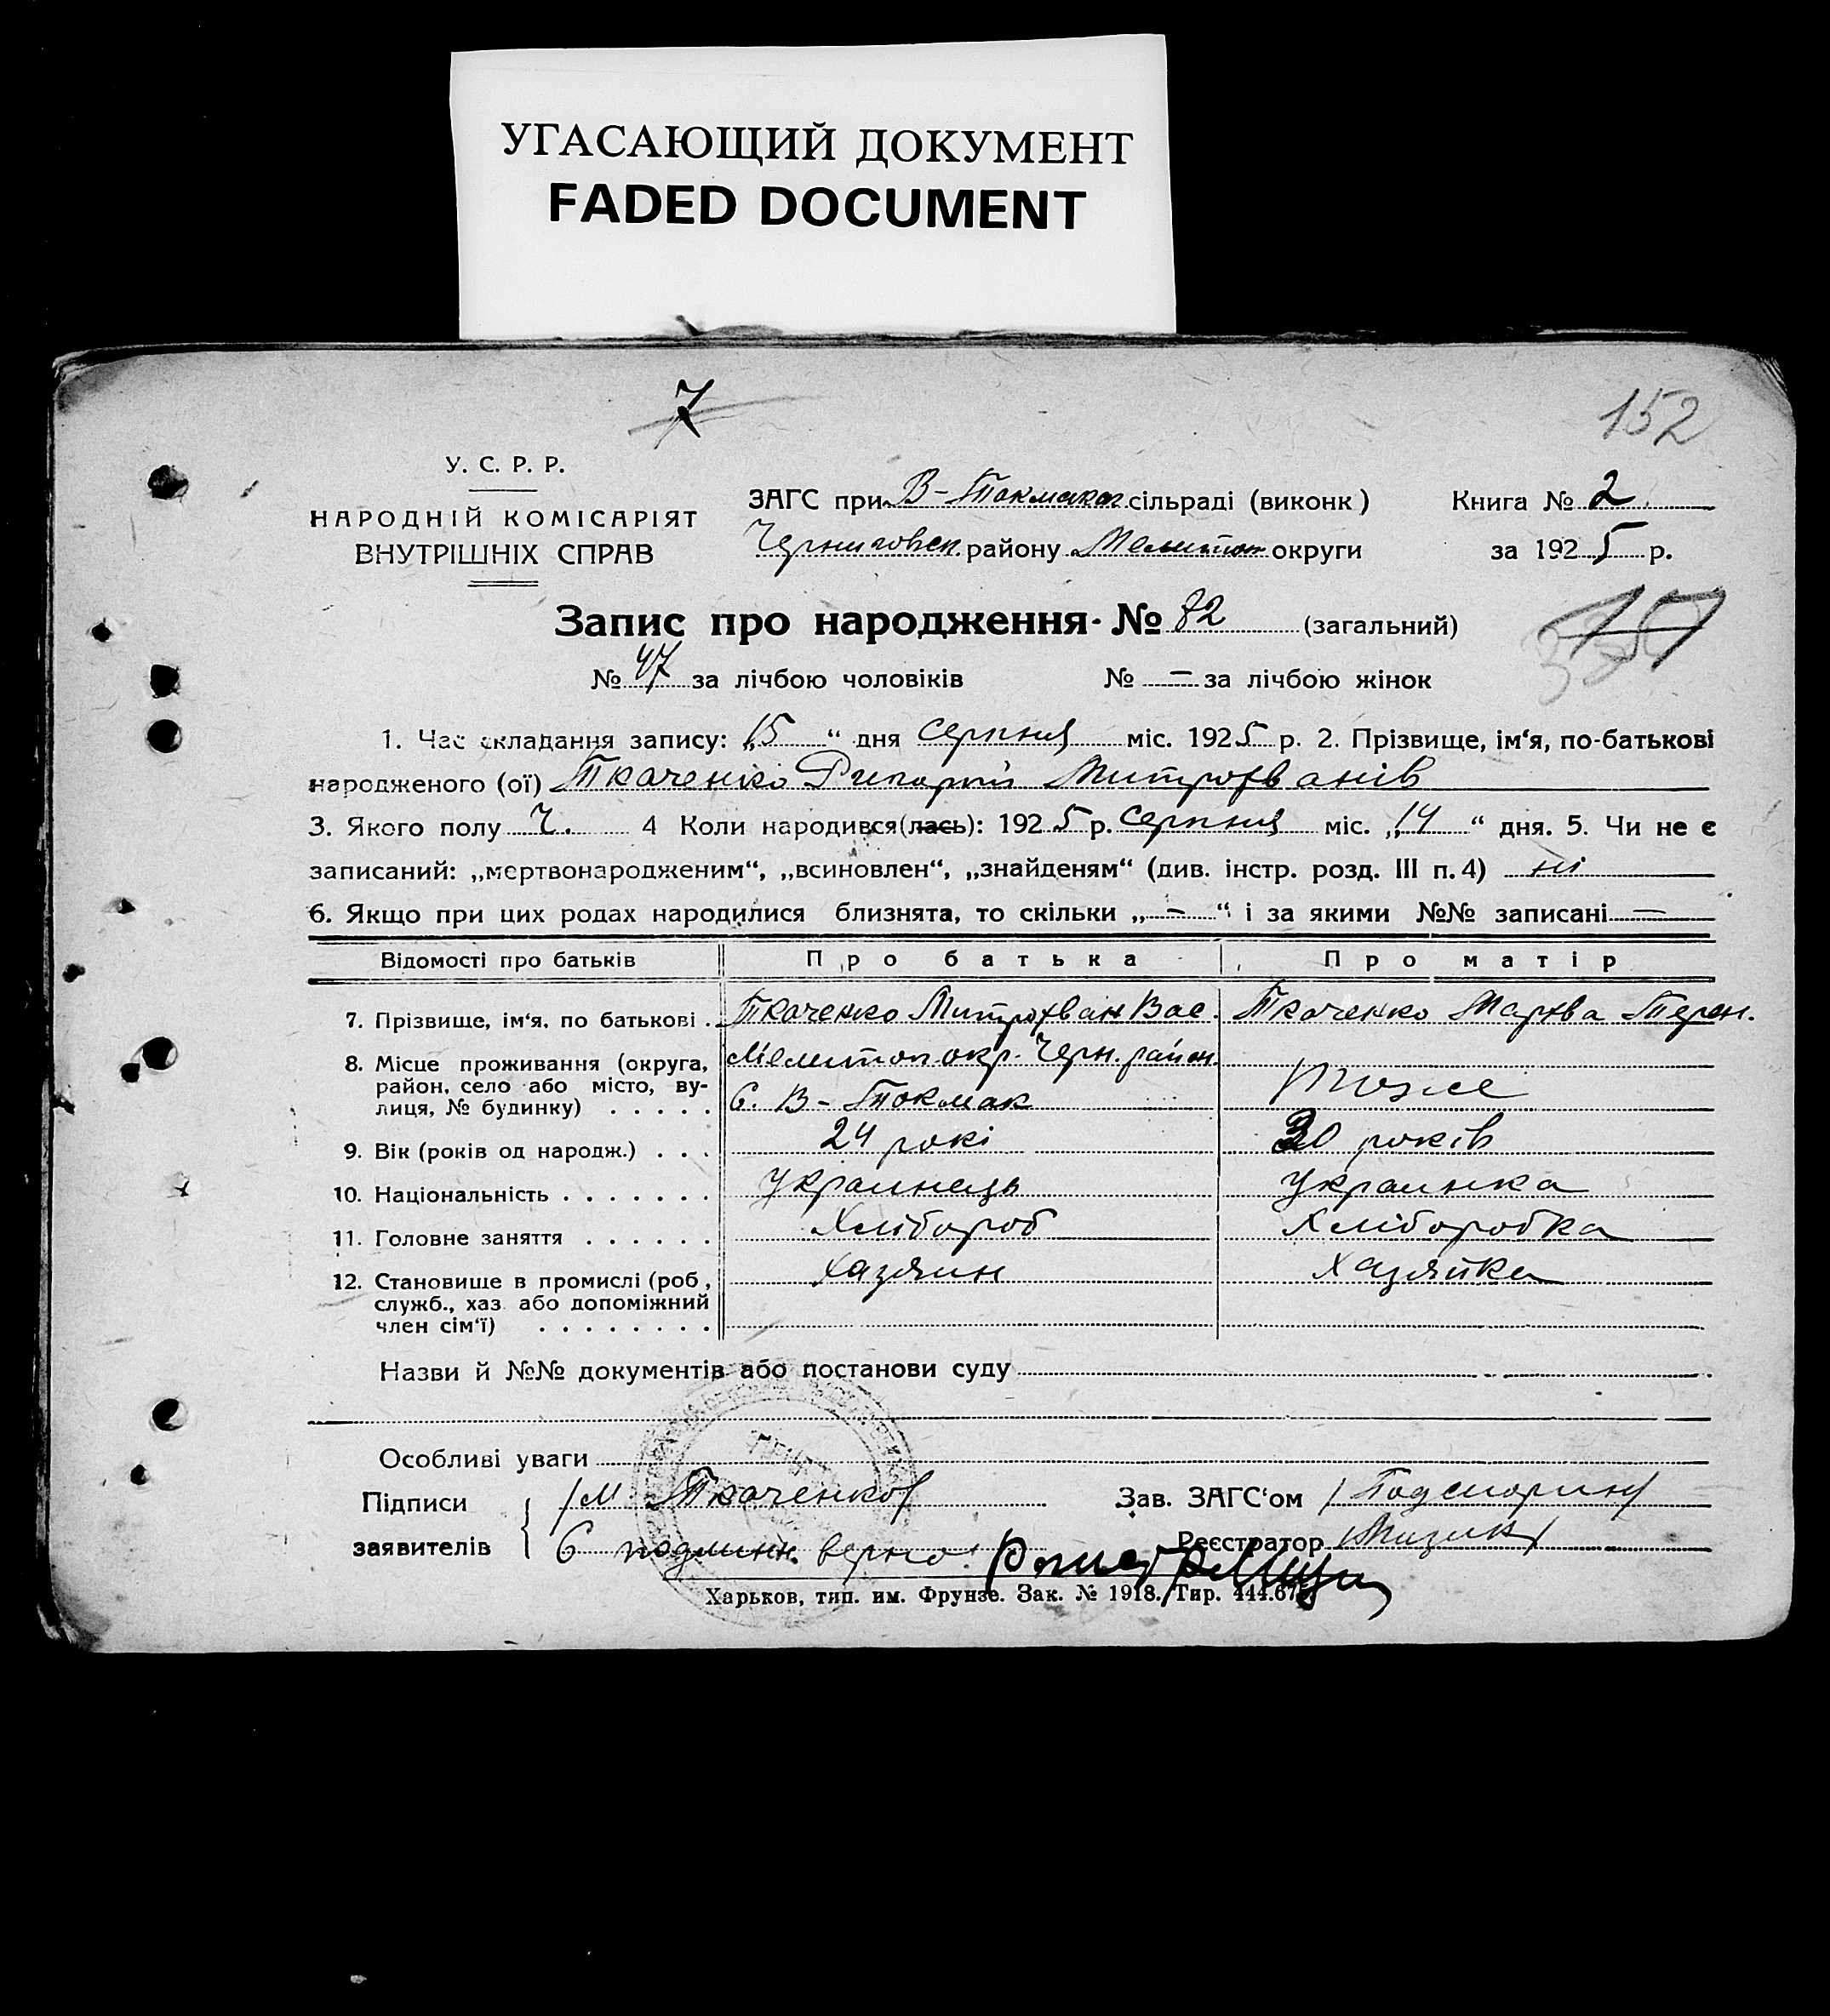 УГАСАЮЩИЙ ДОКУМЕНТ
FADED DOCUMENT
7
152
У. С. Р. Р.
НАРОДНІЙ КОМІСАРІЯТ
ВНУТРІШНІХ СПРАВ
ЗАГС при В-Токмакаг сільраді (виконк)
Книга № 2
Черниговск. району Мелитоп округи
за 1925 р.
Запис про народження № 82 (загальний)
151
№ 47 за лічбою чоловіків № — за лічбою жінок
1. Час складання запису: „15“ дня серпня міс. 1925 р. 2. Прізвище, ім‘я, по-батькові
народженого (ої) Ткаченко Григорій Митрофванів
3. Якого полу Ч. 4 Коли народився(лась): 1925 р. серпня міс. „14“ дня. 5. Чи не є
записаний: „мертвонародженим“, „всиновлен“, „знайденям“ (див. інстр. розд. III п. 4) ні
6. Якщо при цих родах народилися близнята, то скільки „—“ і за якими №№ записані —
Відомості про батьків Про батька Про матір
7. Прізвище, ім‘я, по батькові . Ткаченко Митрофван Вас. Ткаченко Марфва Терен.
8. Місце проживання (округа, Мелитоп. окр. Черн. район.
район, село або місто, ву-
лиця, № будинку) . . . . . С. В-Токмак тоже
9. Вік (років од народж.) . . . 24 рокі 30 років
10. Національність . . . . . . . Украинець Украинка
11. Головне заняття . . . . . . Хлібороб Хліборобка
12. Становище в промислі (роб., Хазяин Хазяйка
служб., хаз. або допоміжний
член сім‘ї) . . . . . . . .
Назви й №№ документів або постанови суду
Особливі уваги
Підписи /М. Ткаченко/ Зав. ЗАГС‘ом /Подсморин/
заявителів С подлинн. верно: Реєстратор /Мизик/
Харьков, тип. им. Фрунзе. Зак. № 1918. Тир. 444.67